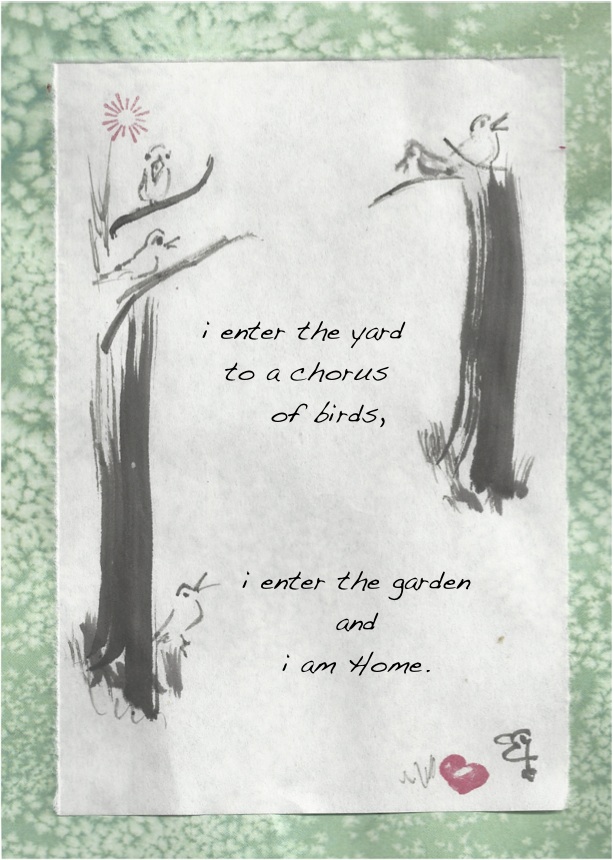 i enter the yard
to a chorus
of birds,
i enter the garden
and
i am Home.